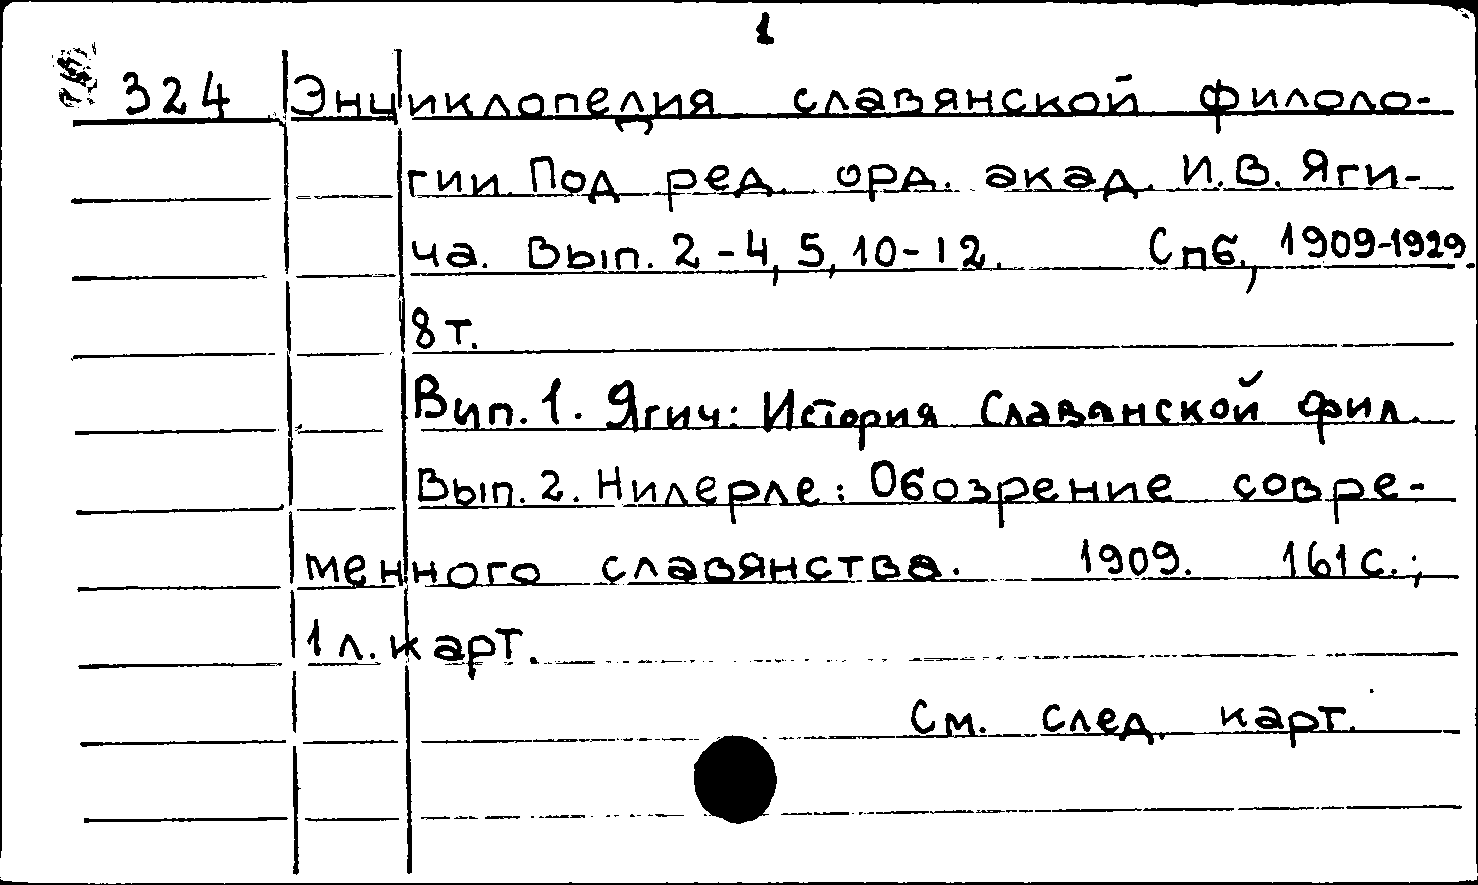 1
324 Энциклопедия славянской филоло-
гии. Под ред. орд. акад. И.В. Яги-
ча. Вып. 2-4, 5, 10-12. Спб., 1909-1929.
8 т.
Вип. 1. Ягич: История Славянской фил.
Вып. 2. Нилерле: Обозрение совре-
менного славянства. 1909. 161 с.;
1 л. карт.
См. след. карт.